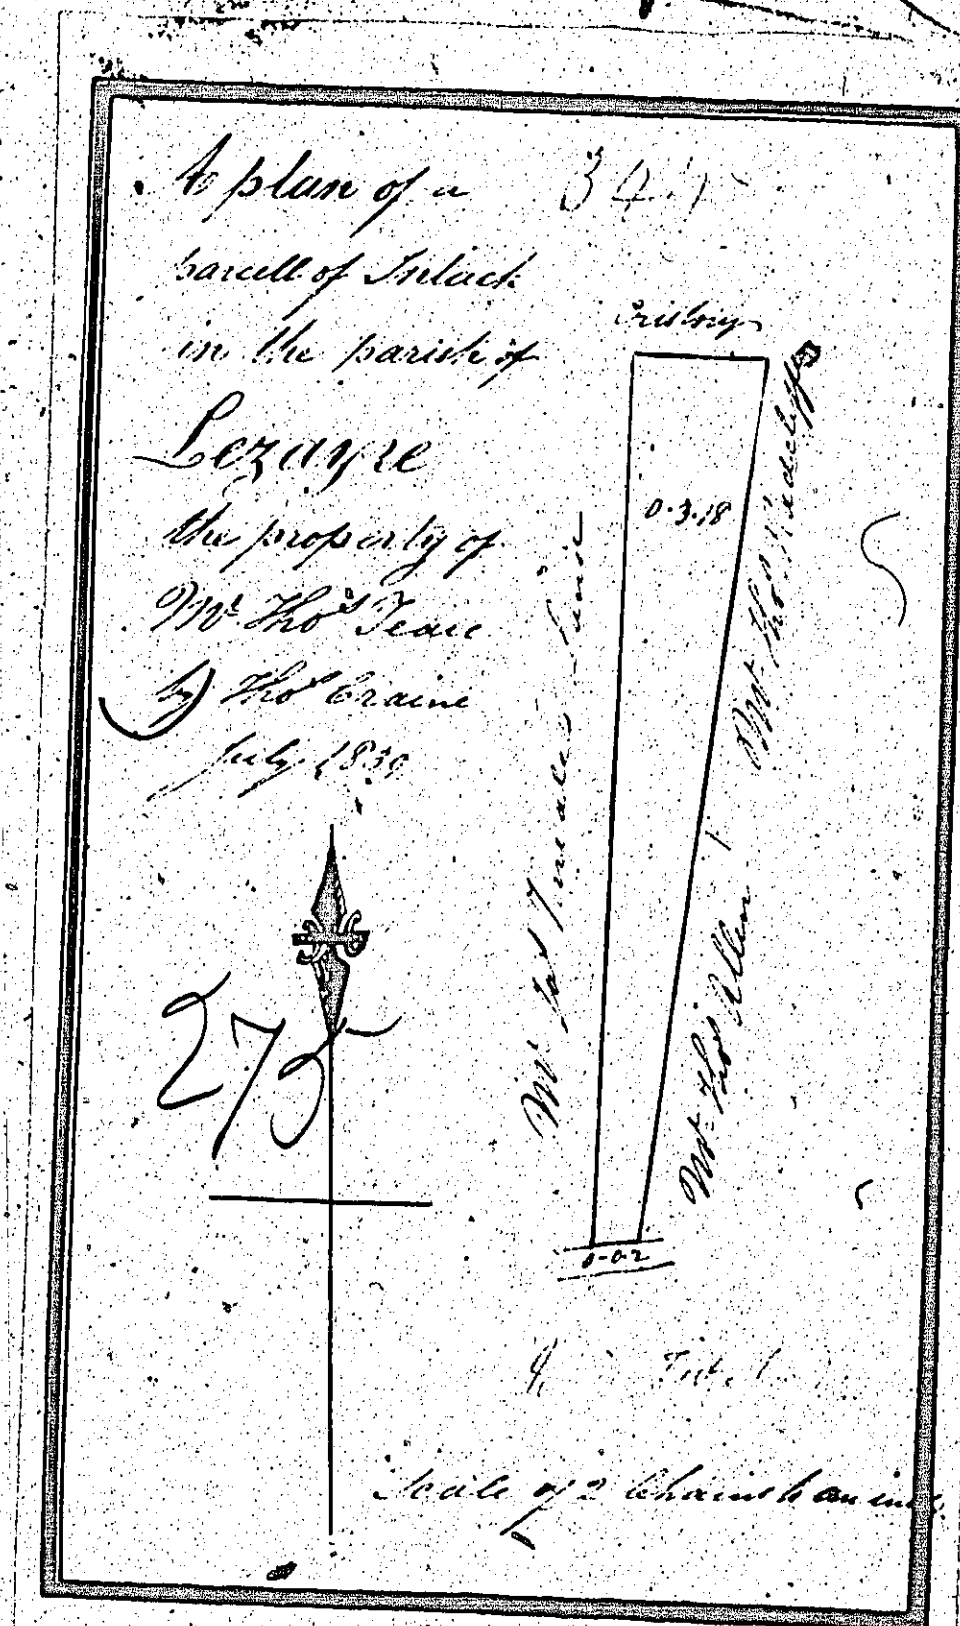 A plan of a
parcell of Intack
in the parish of
Lezayre
the property of
Mr Thos Teare
by Thos Craine
July 1839
275
34
0.3.18
Mr Thos Radcliffe
Mr Thos Allen
Mr Jas
0-0-2
Scale of 2 Chains to an inch